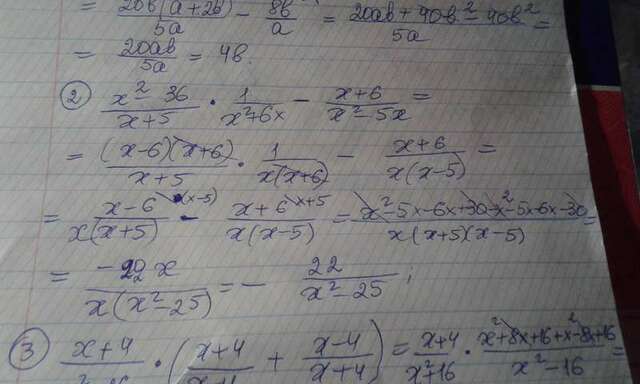 = 20в(a+2в)/5a - 8в/a = 20aв + 40в² - 40в²/5a =
= 20aв/5a = 4в.
② x² - 36/x+5 · 1/x²+6x - x+6/x²-5x =
= (x-6)(x+6)/x+5 · 1/x(x+6) - x+6/x(x-5) =
= x-6 (x-5)/x(x+5) - x+6 x+5/x(x-5) = x²-5x-6x+30-x²-5x-6x-30/x(x+5)(x-5) =
= -22x/x(x²-25) = - 22/x²-25 ;
③ x+4 · (x+4 + x-4/x+4) = x+4/x²+16 · x²+8x+16+x²-8x+16/x²-16 =